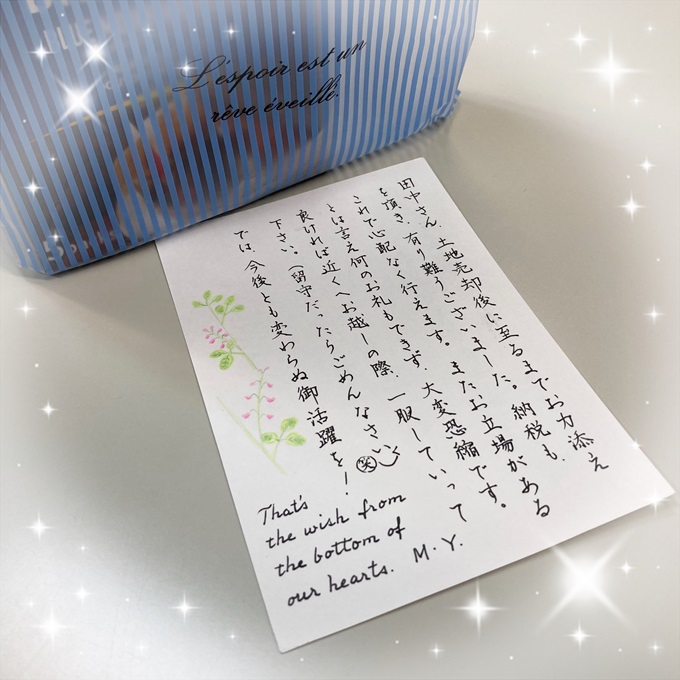 L'espoir est un
rêve éveillé.
田中さん、土地売却後に至るまでお力添え
を頂き、有り難うございました。納税も、
これで心配なく行えます。またお立場がある
とは言え何のお礼もできず、大変恐縮です。
良ければ近くへお越しの際、一服していって
下さい。(留守だったらごめんなさい笑)
では、今後とも変わらぬ御活躍を!
That's
the wish from
the bottom of
our hearts. M.Y.